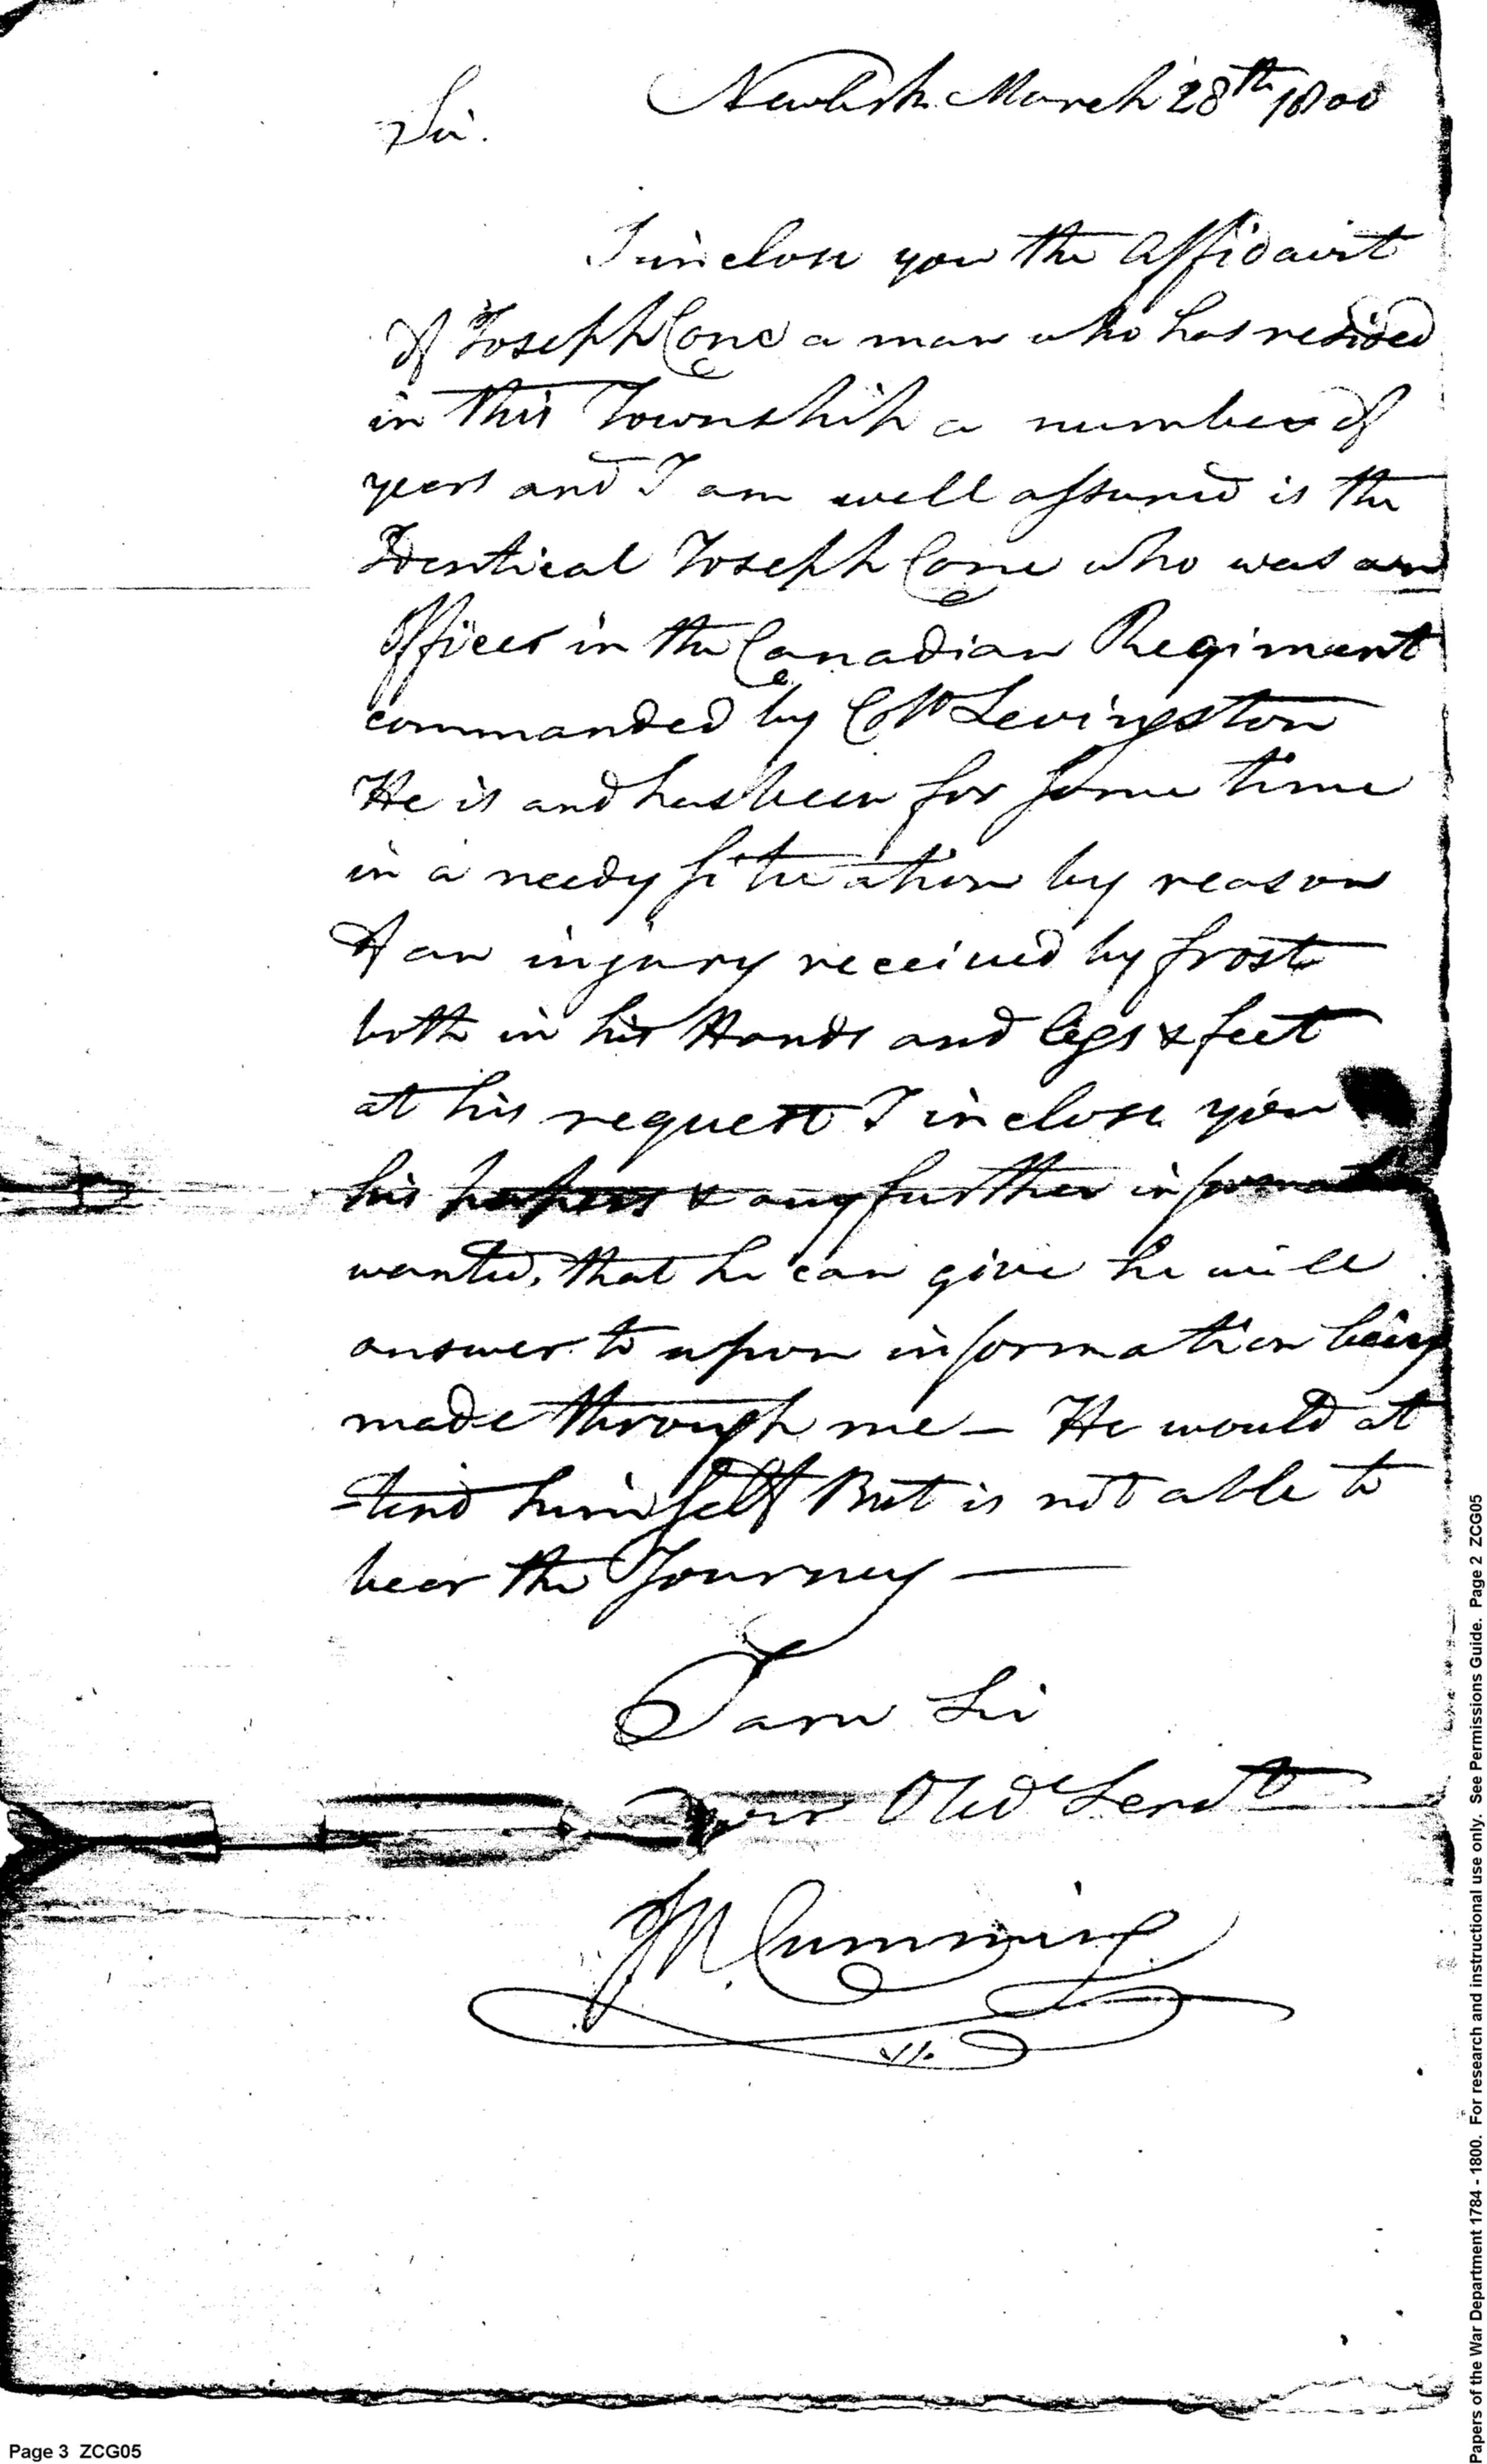 Newark March 28th 1800
Sir.
I inclose you the Affidavit
of Joseph Cone a man who has resided
in this Township a number of
years and I am well assured is the
Identical Joseph Cone who was an
Officer in the Canadian Regiment
commanded by Coll Levingston
He is and has been for some time
in a needy situation by reason
of an injury received by frost
both in his Hands and legs & feet
at his request I inclose you
his papers & any further information
wanted, that he can give he will
answer to upon information being
made through me — He would at
-tend himself But is not able to
bear the Journey —
I am Sir
Your Obed Servt
Cumming
Page 3 ZCG05
Papers of the War Department 1784 - 1800. For research and instructional use only. See Permissions Guide. Page 2 ZCG05